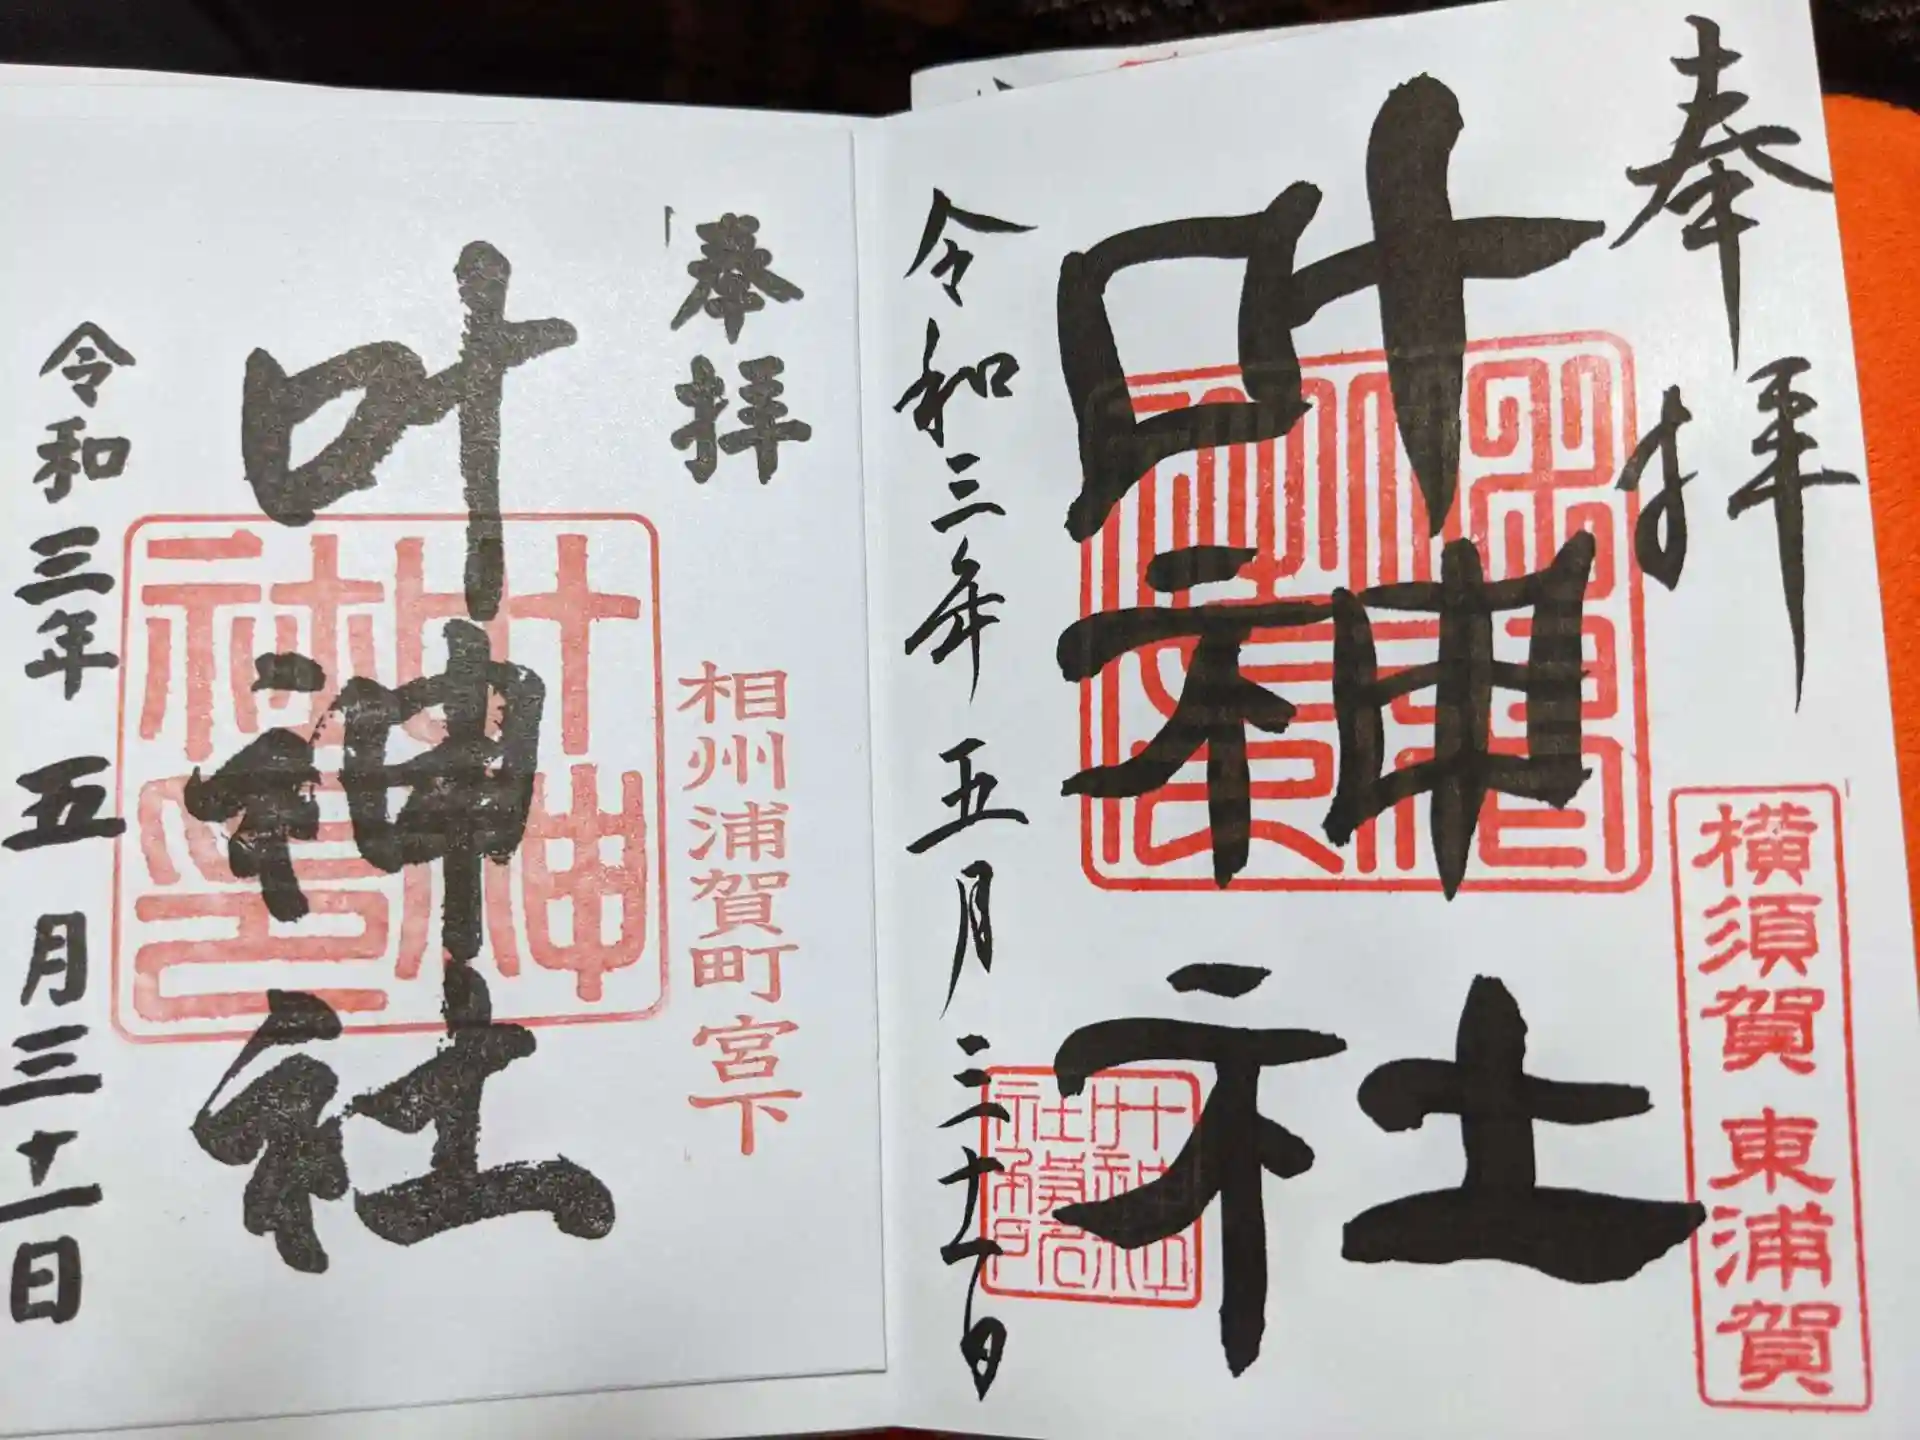 奉拝
横須賀 東浦賀
叶神社
令和三年 五月三十一日
叶神社
社務所印
奉拝
相州浦賀町宮下
叶神社
叶神社印
令和三年 五月三十一日